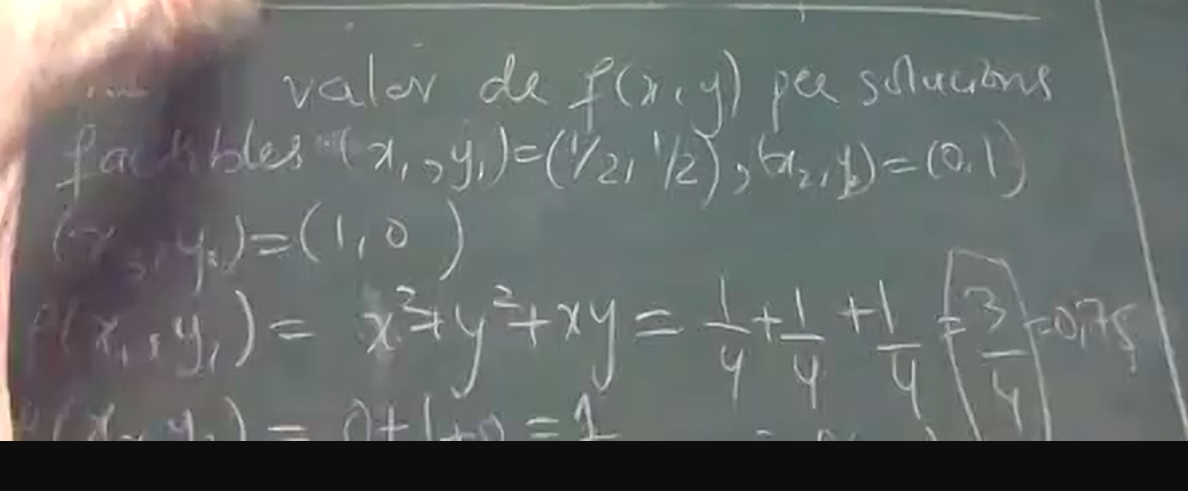 valor de f(x,y) per solucions
factibles (x₁,y₁)=(1/2, 1/2), (x₂,y₂)=(0,1)
y₁)=(1,0)
f(x₁,y₁)= x²+y²+xy = 1/4 + 1/4 + 1/4 = 3/4 = 0,75
= 0+1+0 = 1